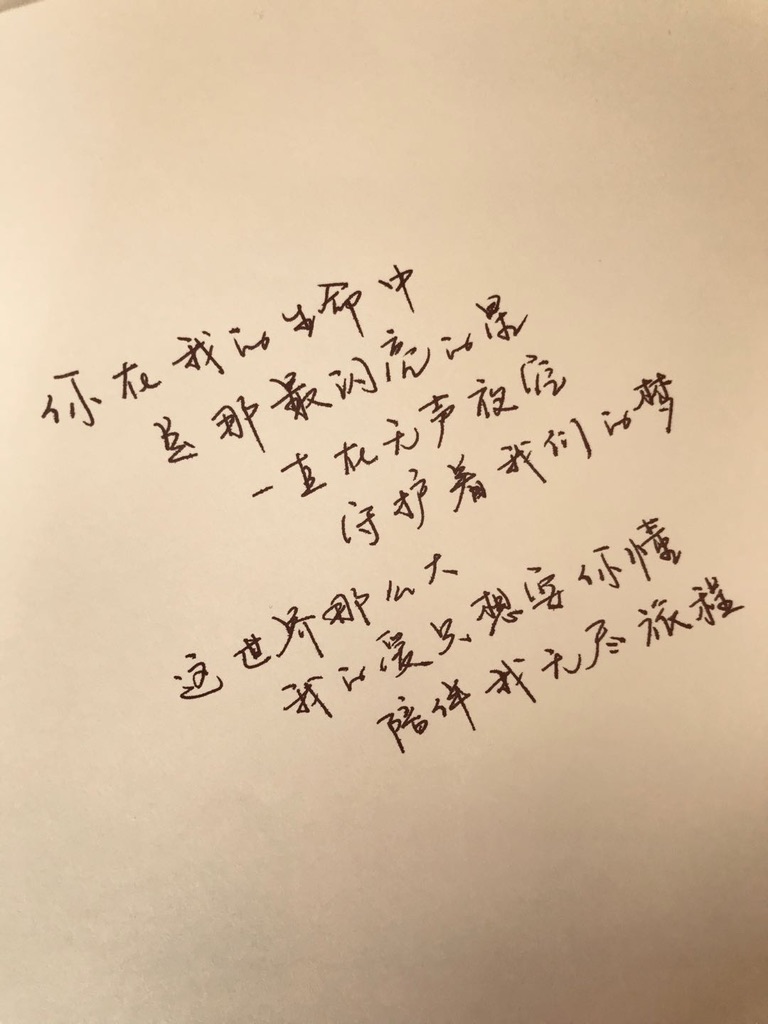 你在我的生命中
是那最闪亮的星
一直在无声夜空
守护着我们的梦
这世界那么大
我的爱只想要你懂
陪伴我无尽旅程